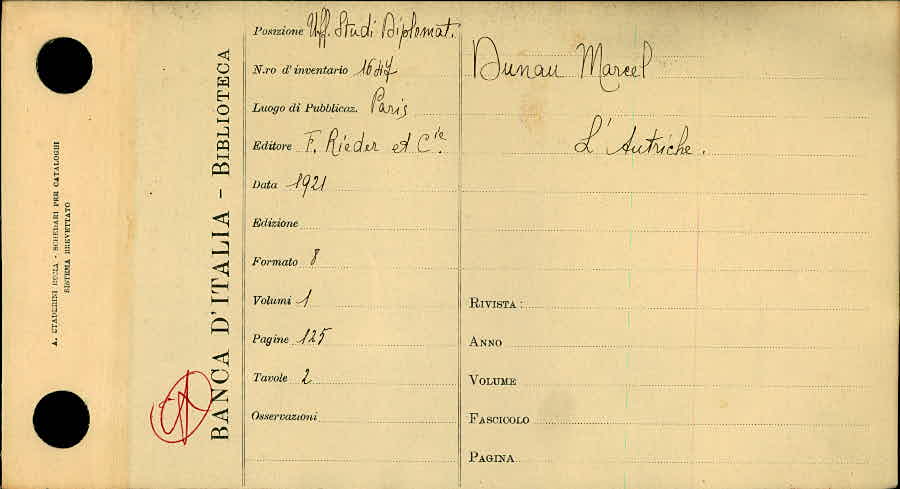 A. STADERINI ROMA - SCHEDARI PER CATALOGHI
SISTEMA BREVETTATO
BANCA D'ITALIA - BIBLIOTECA
Posizione Uff. Studi Diplomat.
N.ro d'inventario 1647
Luogo di Pubblicaz. Paris
Editore F. Rieder et Cie.
Data 1921
Edizione
Formato 8
Volumi 1
Pagine 125
Tavole 2
Osservazioni
Dunan Marcel
L'Autriche.
RIVISTA:
ANNO
VOLUME
FASCICOLO
PAGINA